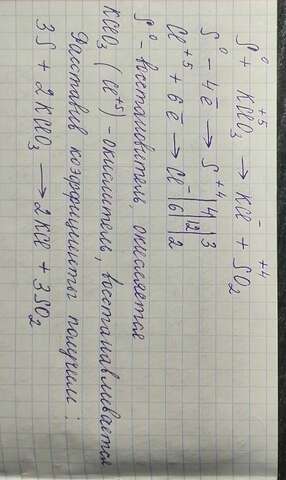 S⁰ + KClO₃⁺⁵ → KCl⁻ + SO₂⁺⁴
S⁰ - 4ē → S⁺⁴ | 4 | 12 | 3
Cl⁺⁵ + 6ē → Cl⁻ | 6 | 2
S⁰ - восстановитель, окисляется
KClO₃ (Cl⁺⁵) - окислитель, восстанавливается
Расставив коэффициенты получим:
3S + 2KClO₃ → 2KCl + 3SO₂